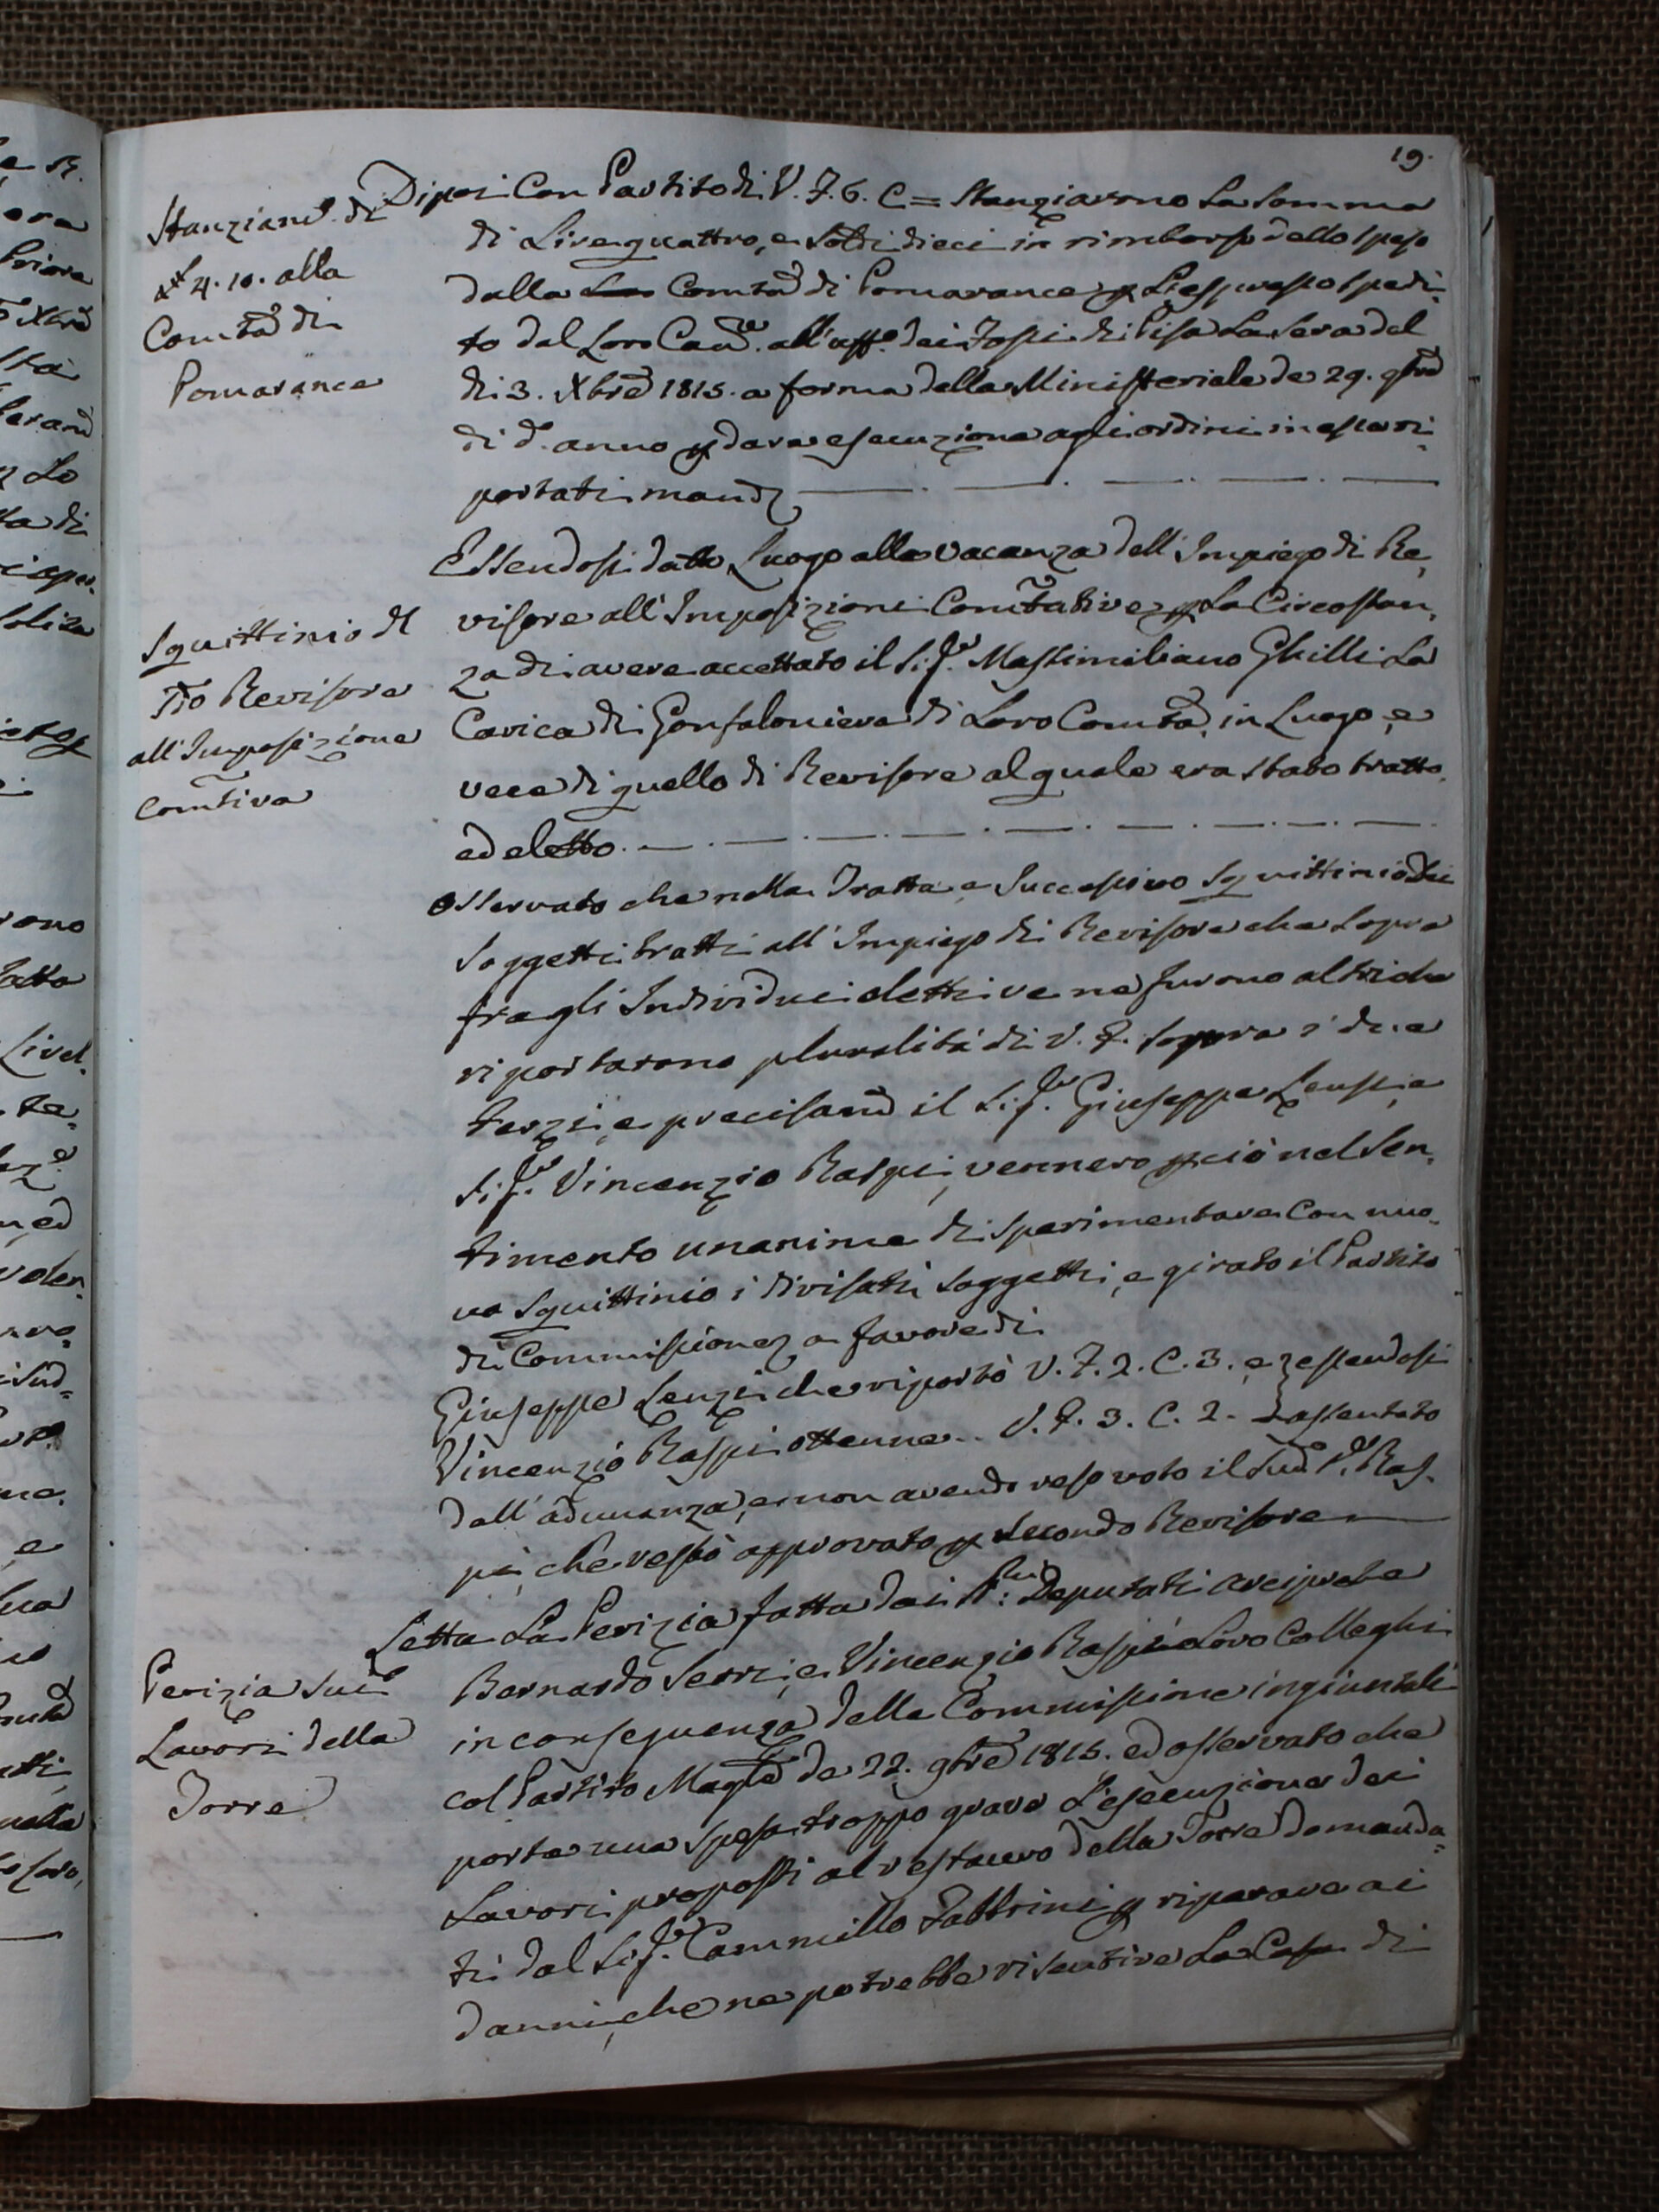 19.
Stanziam.to di
£ 4. 10. alla
Com.tà di
Pomarance
Dipoi Con Partito di V. F. 6. C = Stanziarono La Somma
di Lire quattro, e Soldi dieci in rimborso dello speso
dalla Com.tà di Pomarance p L'espresso spedi=
to dal Loro Canc.re all' uff.o dei Fossi di Pisa La Sera del
dì 3. Xbre 1815. a forma della Ministeriale de 29. 9bre
di d.o anno p dare esecuzione agli ordini in essa ri=
portati mand
Squittinio d'
Revisore
all' Imposizione
Com.tiva
Essendosi dato Luogo alla vacanza dell' Impiego di Re,
visore all' Imposizioni Com.tative p La Circostan,
za di avere accettato il Sig.r Massimiliano Ghilli La
Carica di Gonfaloniere di Loro Com.tà, in Luogo, e
vece di quello di Revisore al quale era stato tratto,
ed eletto.
Osservato che nella Tratta, e Successivo Squittinio dei
Soggetti tratti all' Impiego di Revisore che Sopra
fra gli Individui eletti ve ne furono altri che
riportarono pluralità di V. F. Sopra i due
terzi, e precisam.e il Sig.r Giuseppe Lenzi, e
Sig.r Vincenzio Raspi, vennero p ciò nel Sen,
timento unanime di sperimentare Con nuo,
vo Squittinio i divisati Soggetti, e girato il Partito
di Commissione a favore di
Giuseppe Lenzi che riportò V. F. 2. C. 3. e essendosi
Vincenzio Raspi ottenne V. F. 3. C. 2. assentato
dall' adunanza, e non avendo reso voto il Sud.o S.r Ras,
pi, che restò approvato p Secondo Revisore
Perizia sui
Lavori della
Torre
Letta La Perizia fatta dai SS.ri Deputati Arciprete
Bernardo Serri, e Vincenzio Raspi Loro Colleghi
in conseguenza della Commissione ingiuntali
col Partito Mag.le de 22. 9bre 1815. ed osservato che
porta una spesa troppo grave L'esecuzione dei
Lavori proposti al restauro della Torre domanda=
ti dal Sig.r Cammillo Fabbrini p riparare ai
danni, che ne potrebbe risentire La Casa di